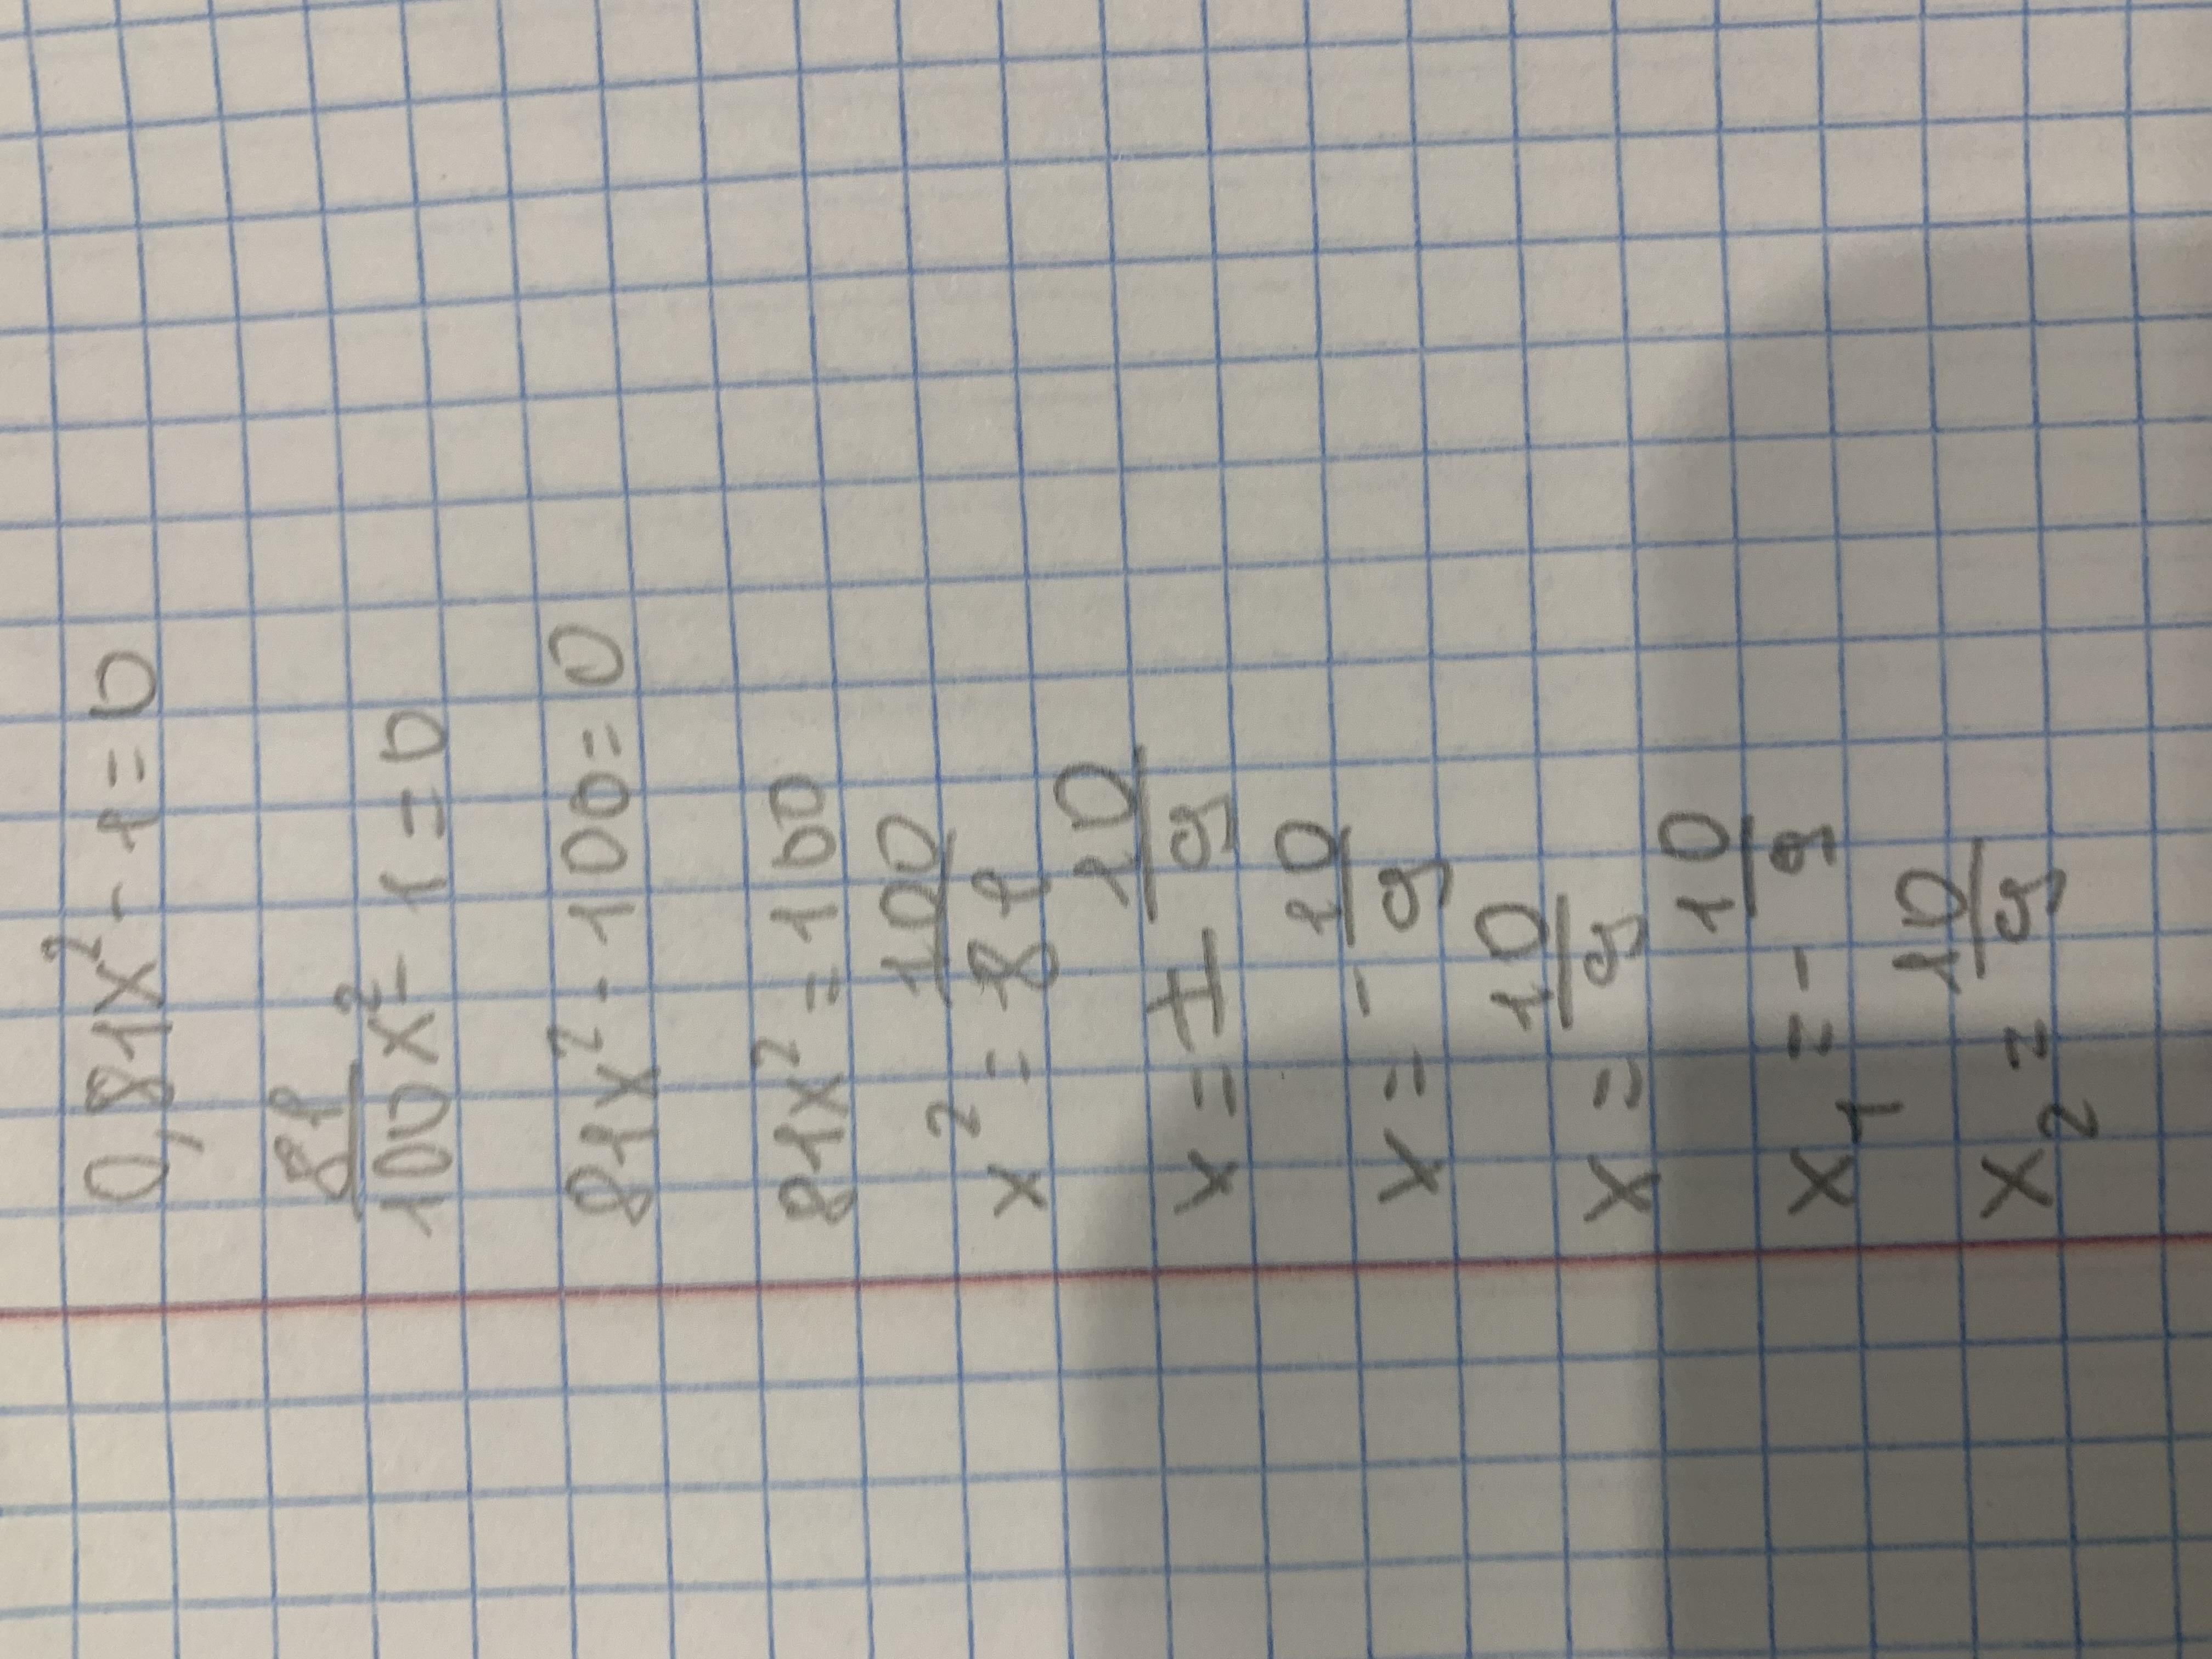 0,81x² - 1 = 0
81/100 x² - 1 = 0
81x² - 100 = 0
81x² = 100
x² = 100/81
x = ± 10/9
x = - 10/9
x = 10/9
x₁ = - 10/9
x₂ = 10/9